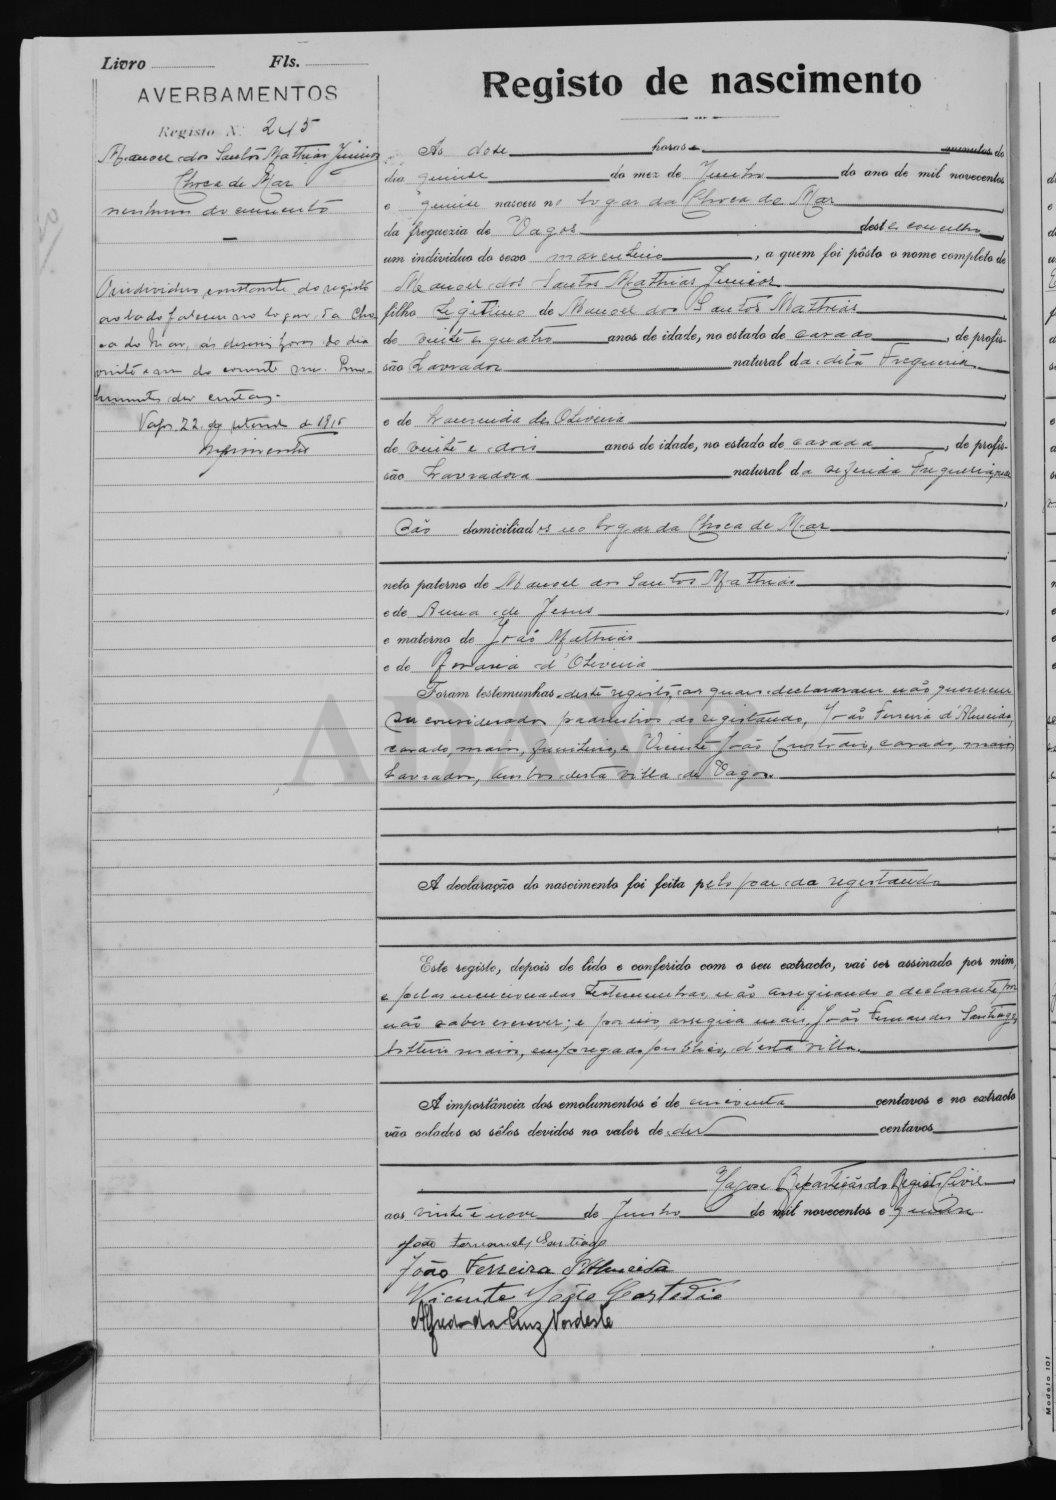 Livro Fls.
AVERBAMENTOS
Registo N.º 245
Manoel dos Santos Mathias Junior
Choca do Mar
nenhum documento
O individuo constante do registo
ao lado faleceu no logar da Cho
ca do Mar, ás horas do dia
vinte e um do corrente mez.
Vagos 22 de de 1915
Registo de nascimento
Às doze horas e minutos do
dia quinze do mez de Junho do ano de mil novecentos
e quinze nasceu no logar da Choca do Mar
da freguezia de Vagos deste concelho
um individuo do sexo masculino, a quem foi pôsto o nome completo de
Manoel dos Santos Mathias Junior
filho legitimo de Manoel dos Santos Mathias
de vinte e quatro anos de idade, no estado de casado, de profis-
são Lavrador natural da dita freguezia
e de de Oliveira
de vinte e dois anos de idade, no estado de casada, de profis-
são Lavradora natural da referida freguezia,
São domiciliados no logar da Choca do Mar
neto paterno de Manoel dos Santos Mathias
e de Anna de Jesus
e materno de João Mathias
e de Rosaria d'Oliveira
Foram testemunhas deste registo, as quais declararam não quererem
ser considerados padrinhos do registando, João Ferreira d'Almeida,
casado, maior, e Vicente João Custodio, casado, maior
lavrador, ambos desta villa de Vagos.
ADAVR
A declaração do nascimento foi feita pelo pae do registando
Este registo, depois de lido e conferido com o seu extracto, vai ser assinado por mim,
e pelas mencionadas testemunhas, não assignando o declarante por
não saber escrever; e por isso assigna mais João Fernandes Santiago,
solteiro maior, empregado publico, d'esta villa.
A importância dos emolumentos é de cincoenta centavos e no extracto
vão colados os sêlos devidos no valor de dez centavos
Vagos e Repartição do Registo Civil
aos vinte e nove de Junho de mil novecentos e quinze
João Fernandes Santiago
João Ferreira d'Almeida
Vicente João Costodio
Alfredo da Cruz Nordeste
Modelo 101